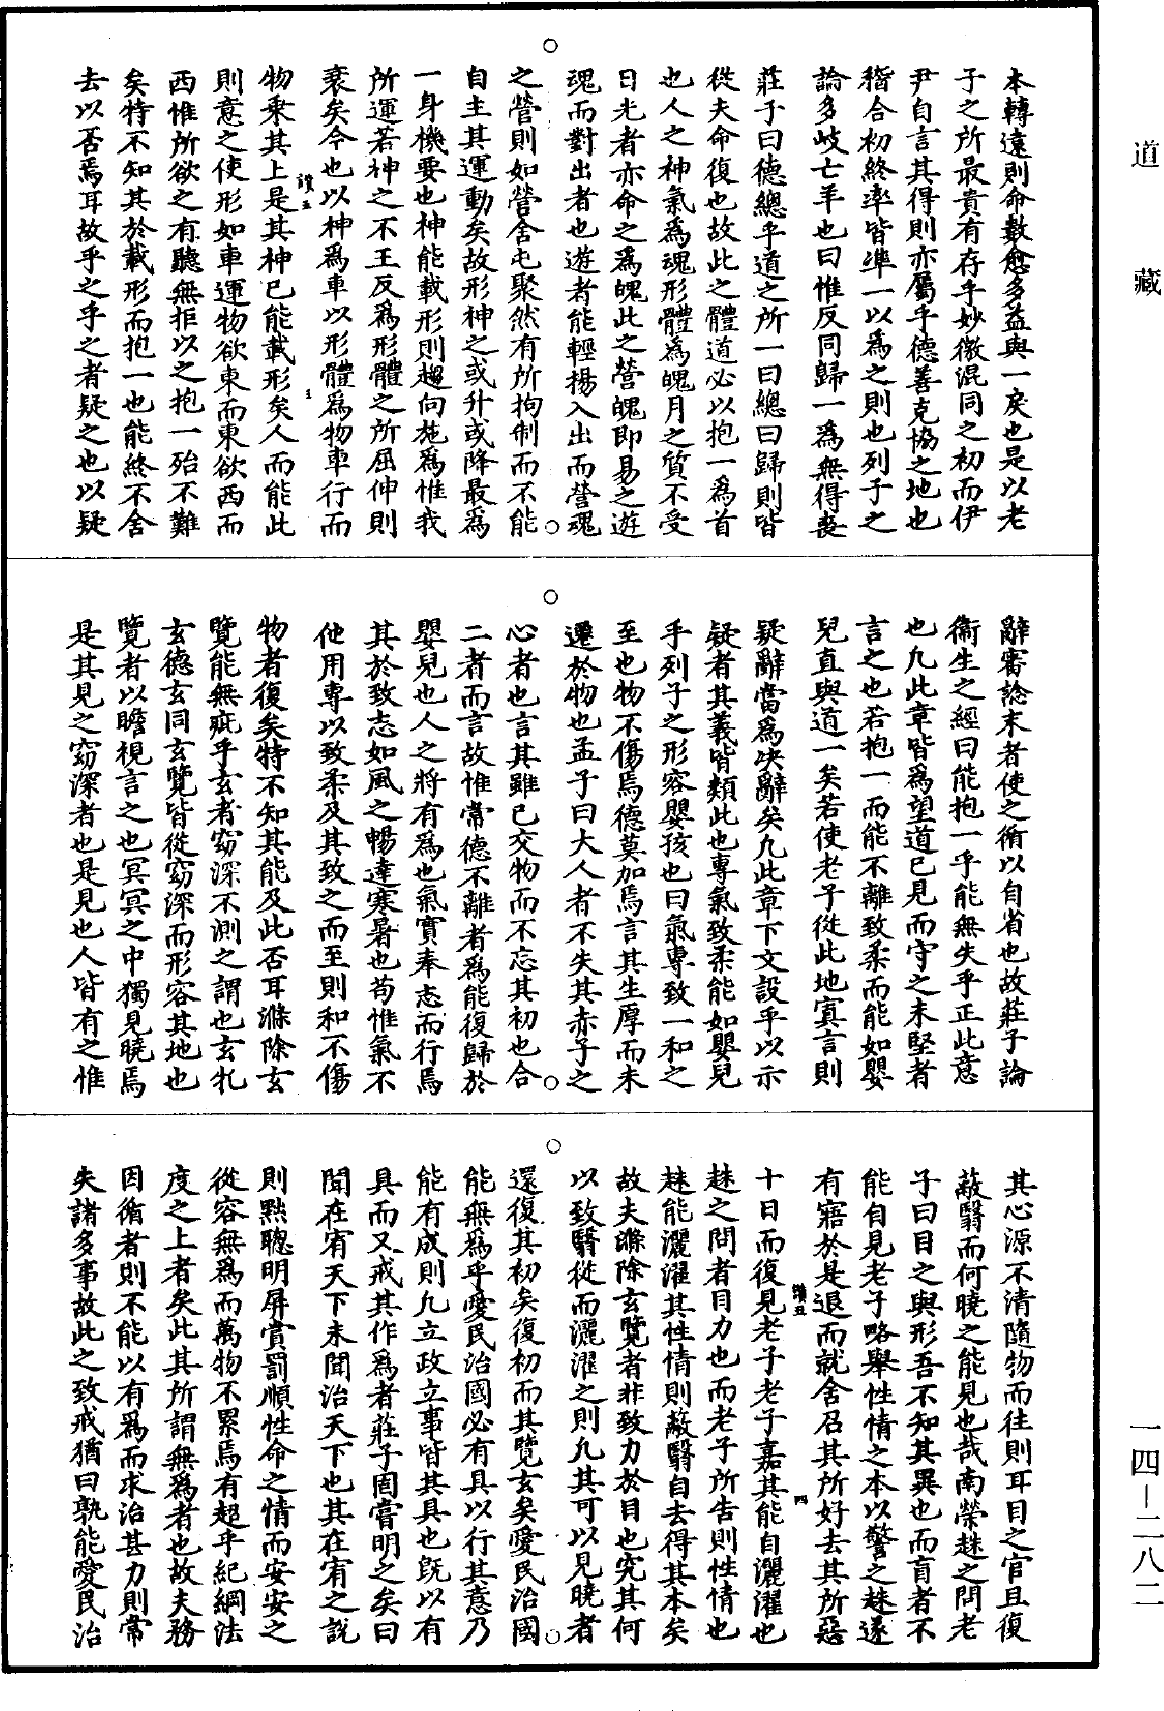 道藏
本轉遠則命數愈多益與一戾也是以老
子之所最貴有存乎妙徼混同之初而伊
尹自言其得則亦屬乎德善克協之地也
稽合初終率皆準一以為之則也列子之
論多岐亡羊也曰惟反同歸一為無得喪
莊子曰德總乎道之所一曰總曰歸則皆
從夫命復也故此之體道必以抱一為首
也人之神氣為魂形體為魄月之質不受
日光者亦命之為魄此之營魄即易之遊
魂而對出者也遊者能輕揚入出而營魂
之營則如營舍屯聚然有所拘制而不能
自主其運動矣故形神之或升或降最為
一身機要也神能載形則趨向施為惟我
所運若神之不王反為形體之所屈伸則
衰矣今也以神為車以形體為物車行而
物乘其上是其神已能載形矣人而能此
則意之使形如車運物欲東而東欲西而
西惟所欲之有聽無拒以之抱一殆不難
矣特不知其於載形而抱一也能終不舍
去以否焉耳故乎之乎之者疑之也以疑
辭審諗末者使之循以自省也故莊子論
衞生之經曰能抱一乎能無失乎正此意
也凡此章皆為望道已見而守之未堅者
言之也若抱一而能不離致柔而能如嬰
兒直與道一矣若使老子從此地寘言則
疑辭當為決辭矣凡此章下文設乎以示
疑者其義皆類此也專氣致柔能如嬰兒
乎列子之形容嬰孩也曰氣專致一和之
至也物不傷焉德莫加焉言其生厚而未
遷於物也孟子曰大人者不失其赤子之
心者也言其雖已交物而不忘其初也合
二者而言故惟常德不離者為能復歸於
嬰兒也人之將有為也氣實奉志而行焉
其於致志如風之暢達寒暑也苟惟氣不
他用專以致柔及其致之而至則和不傷
物者復矣特不知其能及此否耳滌除玄
覽能無疵乎玄者窈深不測之謂也玄牝
玄德玄同玄覽皆從窈深而形容其地也
覽者以瞻視言之也冥冥之中獨見曉焉
是其見之窈深者也是見也人皆有之惟
其心源不清隨物而往則耳目之官且復
蔽翳而何曉之能見也哉南榮趎之問老
子曰目之與形吾不知其異也而盲者不
能自見老子略舉性情之本以警之趎遂
有寤於是退而就舍召其所好去其所惡
十日而復見老子老子嘉其能自灑濯也
趎之問者目力也而老子所告則性情也
趎能灑濯其性情則蔽翳自去得其本矣
故夫滌除玄覽者非致力於目也究其何
以致翳從而灑濯之則凡其可以見曉者
還復其初矣復初而其覽玄矣愛民治國
能無為乎愛民治國必有具以行其意乃
能有成則凡立政立事皆其具也既以有
具而又戒其作為者莊子固嘗明之矣曰
聞在宥天下未聞治天下也其在宥之說
則黜聰明屏賞罰順性命之情而安安之
從容無為而萬物不累焉有超乎紀綱法
度之上者矣此其所謂無為者也故夫務
因循者則不能以有為而求治甚力則常
失諸多事故此之致戒猶曰孰能愛民治
一四—二八二